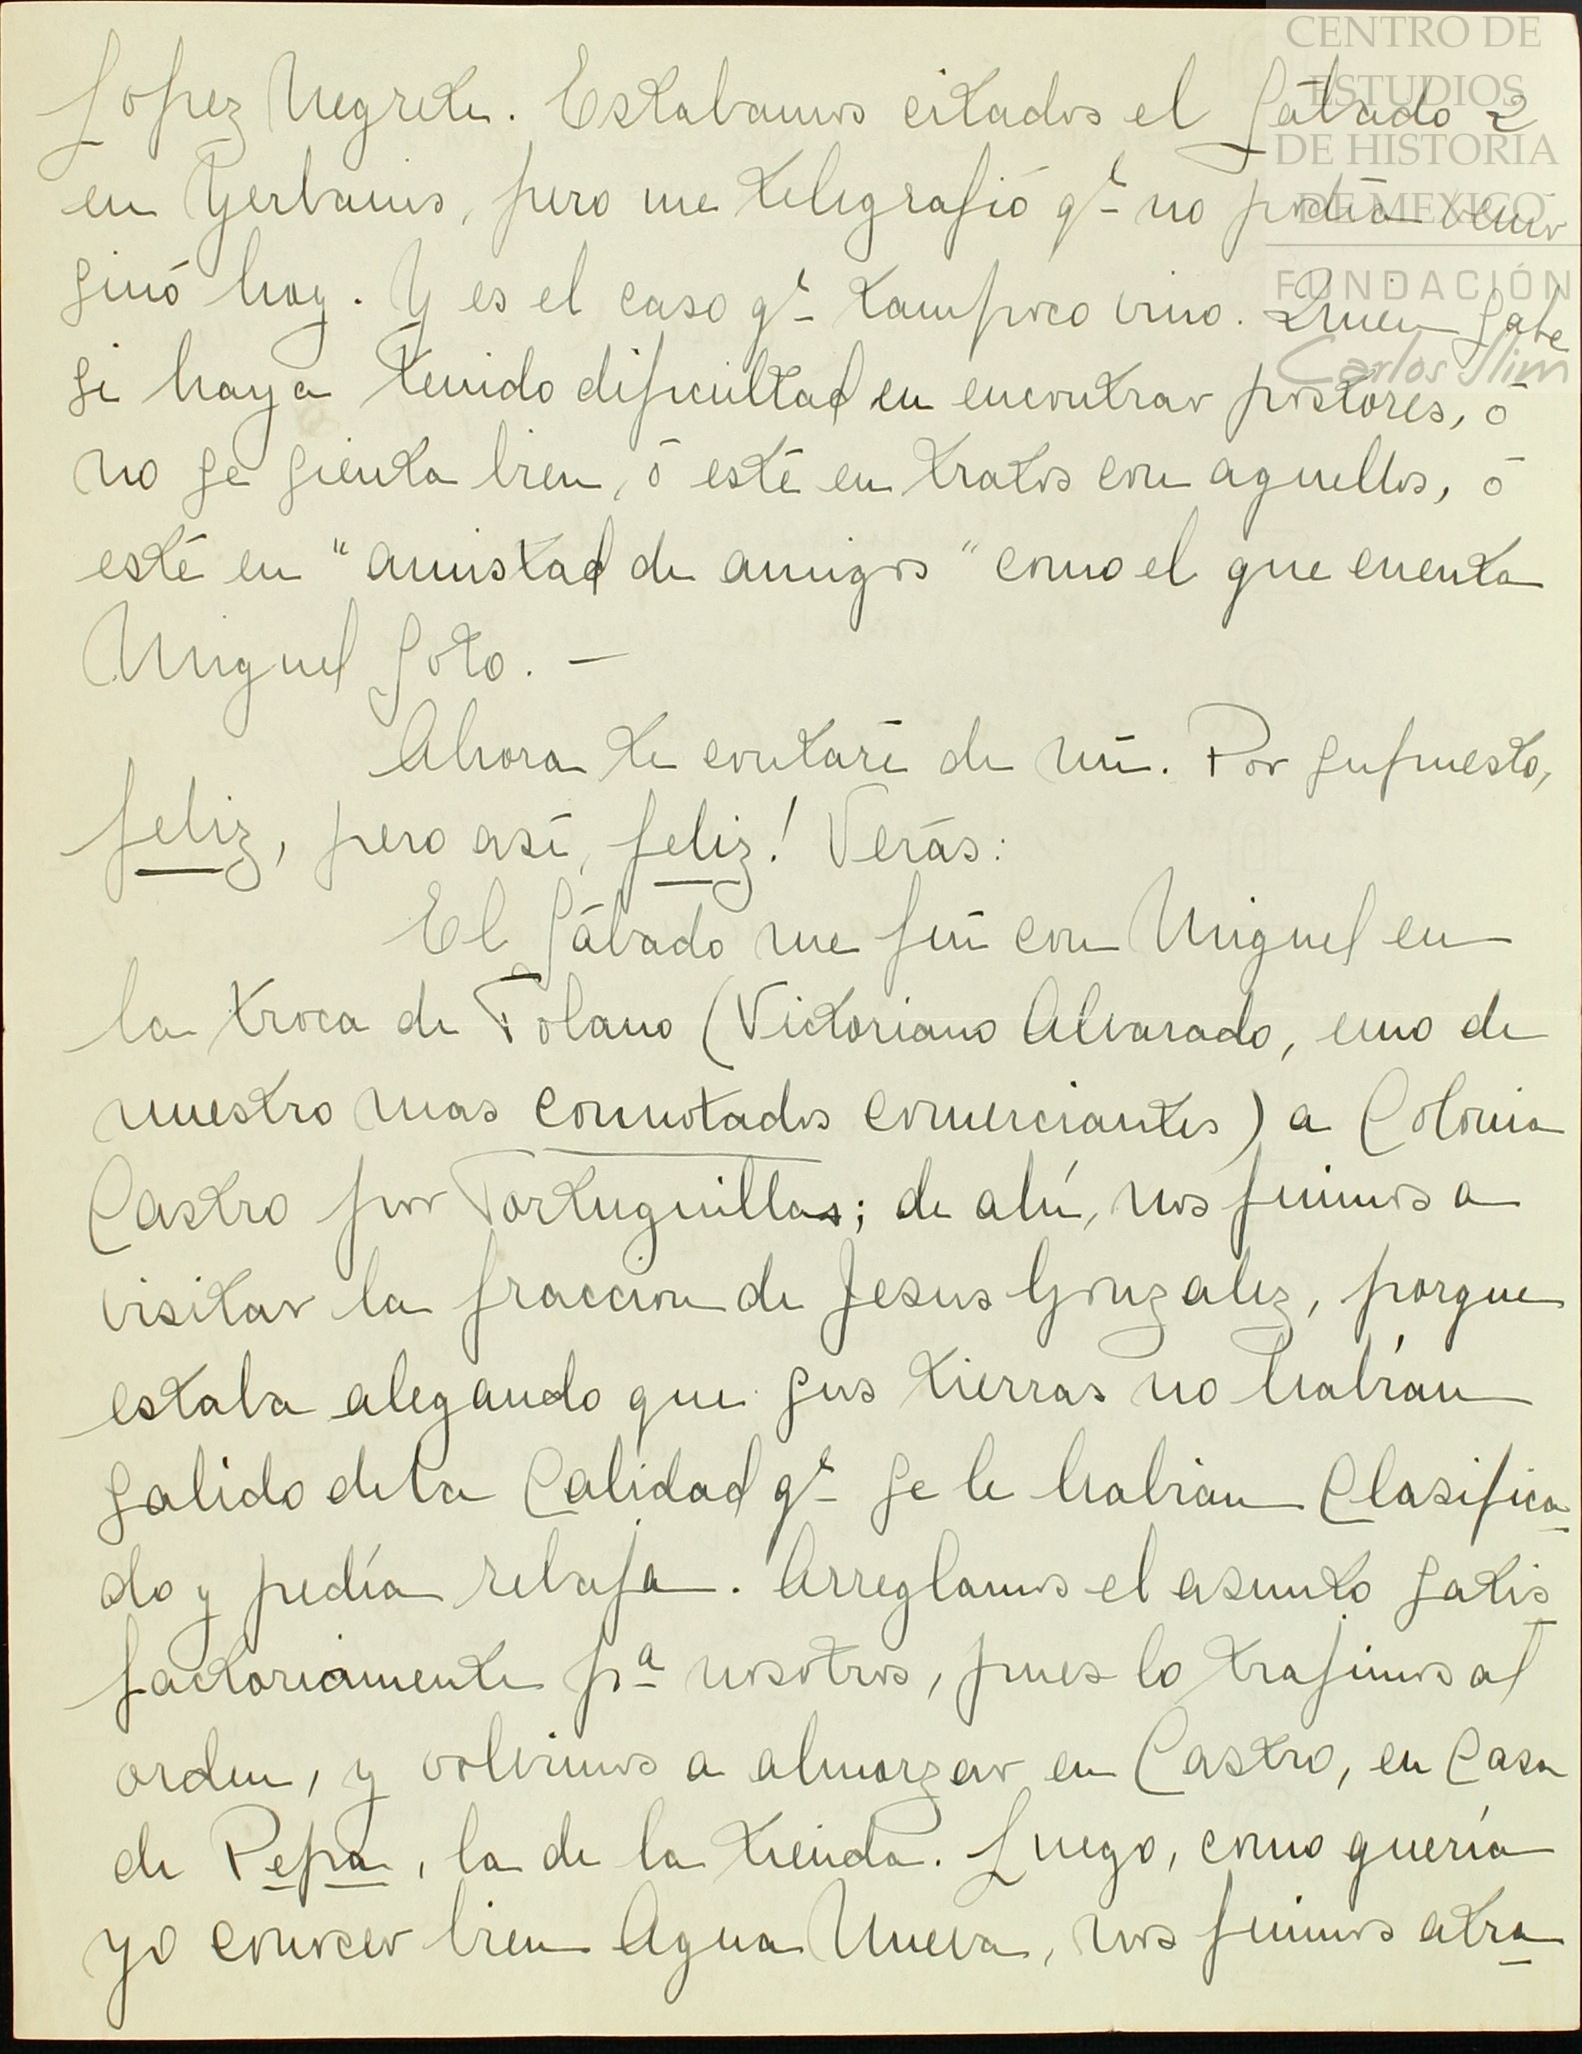 CENTRO DE
ESTUDIOS
DE HISTORIA
DE MEXICO
FUNDACIÓN
Carlos Slim
Lopez Negrete. Estabamos citados el Sábado 2
en Yerbanis, pero me telegrafió qe no podía venir
sinó hoy. Y es el caso qe tampoco vino. Quien sabe
si haya tenido dificultad en encontrar postores, ó
no se sienta bien, ó esté en tratos con aquellos, ó
esté en "amistad de amigos" como el que cuenta
Miguel Soto. —
Ahora te contaré de mí. Por supuesto,
feliz, pero así, feliz! Verás:
El Sábado me fuí con Miguel en
la troca de Tolano (Victoriano Alvarado, uno de
nuestro mas connotados comerciantes) a Colonia
Castro por Tortuguillas; de ahí, nos fuimos a
visitar la fraccion de Jesus Gonzalez, porque
estaba alegando que sus tierras no habían
salido de la Calidad qe se le habian Clasifica-
do y pedía rebaja. Arreglamos el asunto satis-
factoriamente pa nosotros, pues lo trajimos al
orden, y volvimos a almorzar en Castro, en Casa
de Pepa, la de la tienda. Luego, como quería
yo conocer bien Agua Nueva, nos fuimos atra-